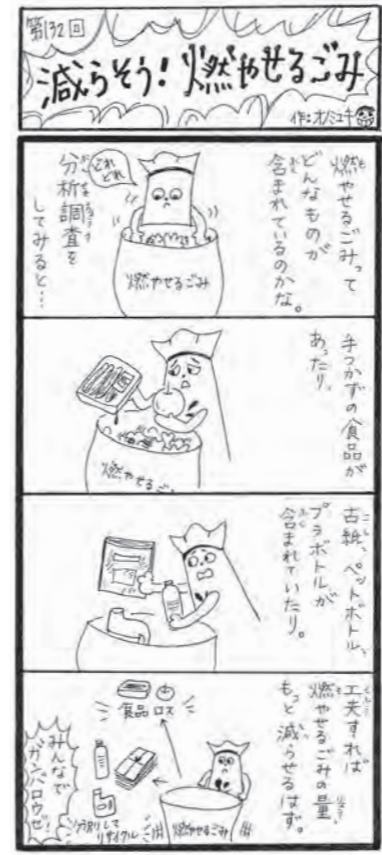 第132回
減らそう!燃やせるごみ
作:オノミユキ
燃やせるごみって
どんなものが
含まれているのかな。
どれどれ
分析調査を
してみると…
燃やせるごみ
手つかずの食品が
あったり、
燃やせるご
古紙、ペットボトル、
プラボトルが
含まれていたり。
工夫すれば
燃やせるごみの量、
もっと減らせるはず。
食品ロス
分別して
リサイクル
燃やせるごみ
みんなで
ガンバロウゼ!